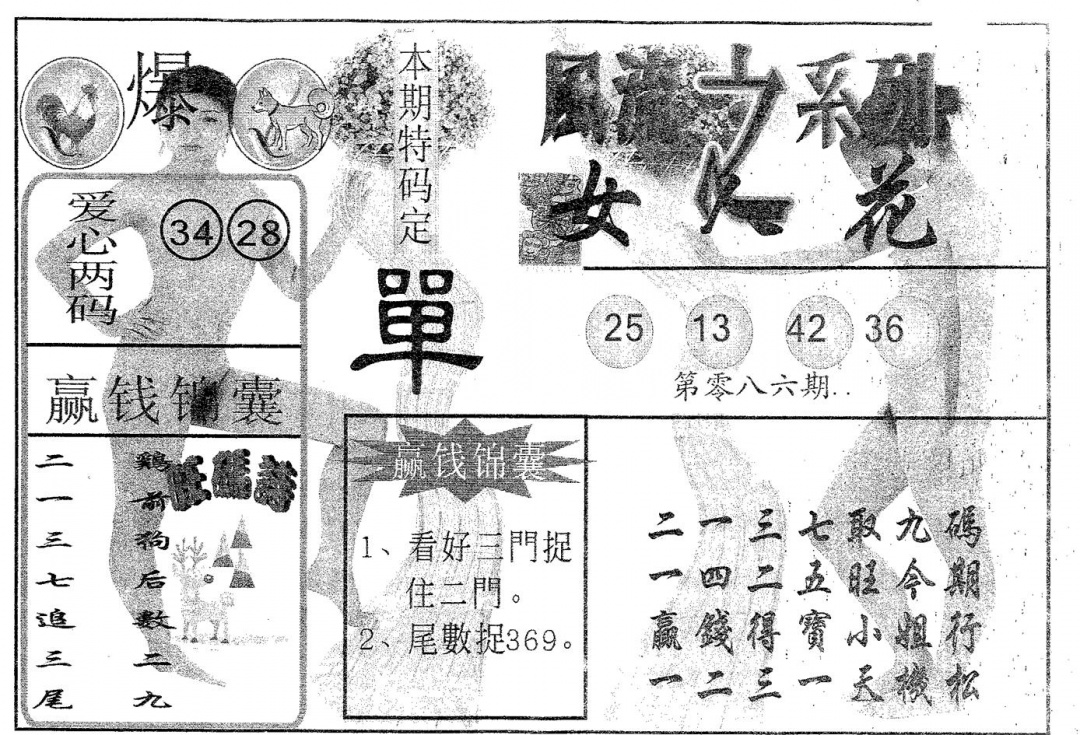 爆
本期特码定
單
系列
女人花
爱心两码
34 28
25 13 42 36
第零八六期..
赢钱锦囊
旺碼詩
鷄前狗后數二九
二一三七追三尾
赢钱锦囊
1、看好三門捉
住二門。
2、尾數捉369。
二一三七取九碼
一四二五旺今期
赢錢得寶小姐行
一二三一天機松